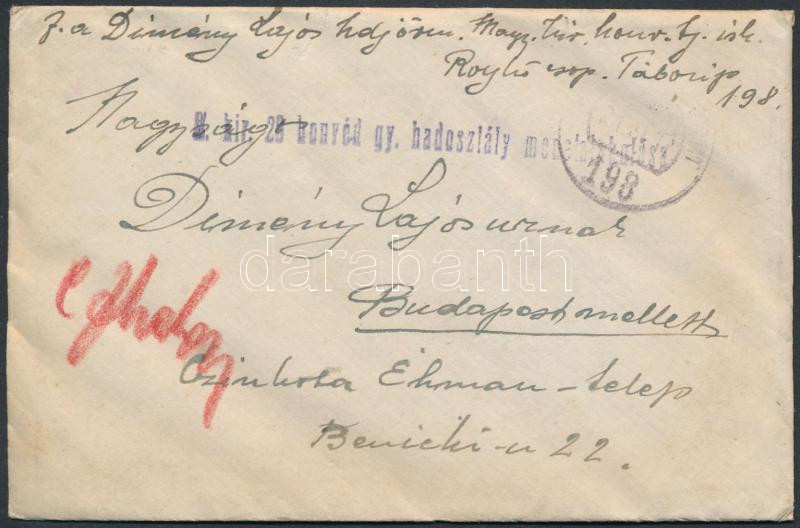 F. a Dimény Lajos hdjősm. Magy. kir. honv. tj. isk.
csop. Táborip.
198.
Nagyságos
M. kir. 20 honvéd gy. hadosztály
198
Dimény Lajos urnak
darabanth
Budapest mellett
Czinkota Ehman-telep
Beniczki-u 22.